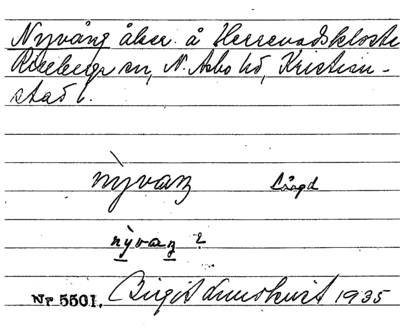 Nyvång åker å Herrevadskloste
Riseberga sn, N. Åsbo hd, Kristian-
stad l.
nỳvaŋ Låägd
nỳvaŋ ?
Nr 5501. Birgit Lundkvist 1935